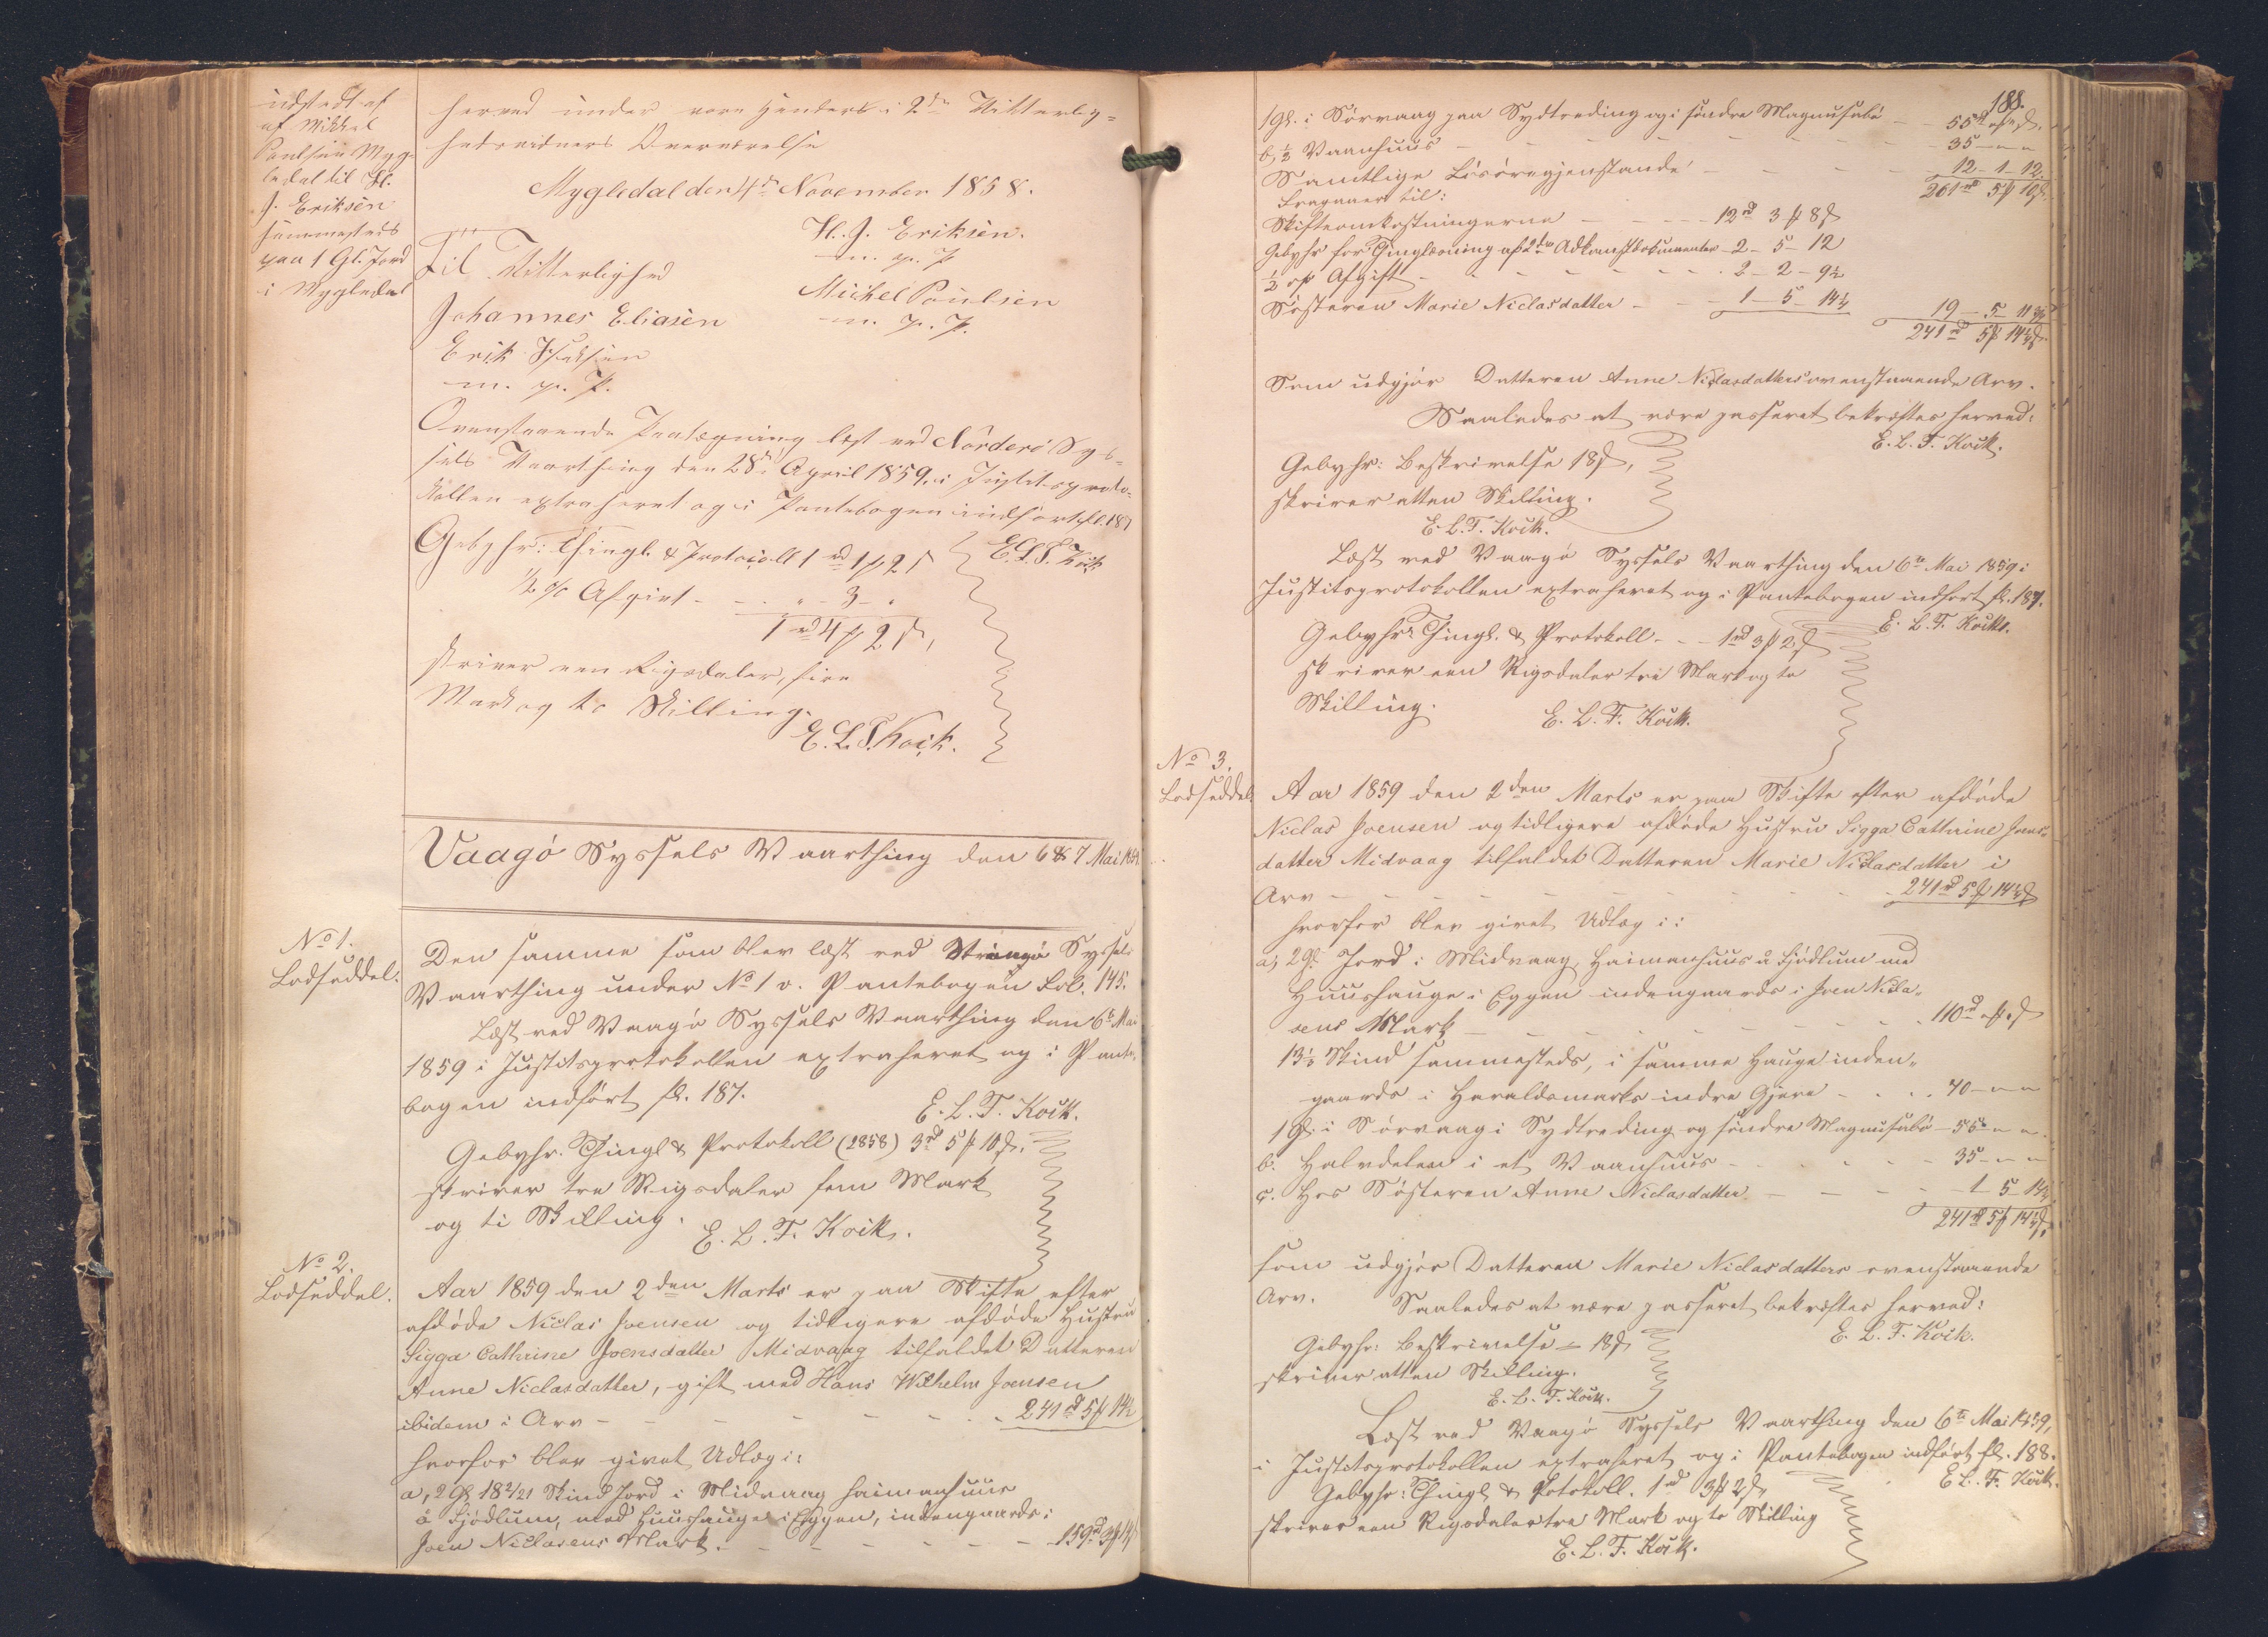 udstedt af
af Mikkel
Poulsen Myg-
ledal til H.
J. Eriksen
sammesteds
paa 1 Gl. Jord
i Mygledal
herved under vore Hænder i 2de Vitterlig-
hedsvidners Overværelse
Mygledal den 4de November 1858.
H. J. Eriksen.
m. p. P.
Til Vitterlighed
Michel Poulsen
m. p. P.
Johannes Eliasen
Erik Isaksen
m. p. P.
Ovenstaaende Paategning læst ved Norderö Sys-
sels Vaarthing den 28de April 1859, i Justitsproto-
kollen extraheret og i Pantebogen indført fol. 187
E. L. T. Kock
Gebyhr: Thingl. & Protocoll 1 rd 1 ꝑ 2 ß
½ % Afgivt - - „ - 3 - „
1 rd 4 ꝑ 2 ß,
skriver een Rigsdaler, fire
Mark og to Skilling.
E. L. T. Kock.
Vaagö Syssels Vaarthing den 6 & 7 Mai 1859
No 1.
Lodseddel:
Den samme som blev læst ved Strömö Syssels
Vaarthing under No 1 v. Pantebogen Fol. 145.
Læst ved Vaagö Syssels Vaarthing den 6te Mai
1859 i Justitsprotokollen extraheret og i Pante-
bogen indført fol. 187.
E. L. T. Kock.
Gebyhr. Thingl & Protokoll (1858) 3 rd 5 ꝑ 10 ß.
skriver tre Rigsdaler fem Mark
og ti Skilling.
E. L. T. Kock.
No 2.
Lodseddel.
Aar 1859 den 2den Marts er paa Skifte efter
afdøde Niclas Joensen og tidligere afdøde Hustru
Sigga Cathrine Joensdatter Midvaag tilfaldet Datteren
Anne Niclasdatter, gift med Hans Wilhelm Joensen
ibidem i Arv - - - - - - - 241 rd 5 ꝑ 14½
hvorfor blev givet Udlæg i:
a, 2 Gl 18 2/21 Skind Jord i Midvaag Heimanhuus
á Fjødlum, med Huushauge i Eggen, indengaards i
Joen Niclasens Mark. - - - - - - 159 rd 3 ꝑ
188.
1 Gl. i Sörvaag paa Sydtreding og i søndre Magnusabö - - 55 rd „ ꝑ „ ß.
b, ½ Vaanhuus - - - - - - 35 - „ - „
Samtlige Løsøregjenstande - - - - - 12 - 1 - 12.
261 rd 5 ꝑ 10 ß.
Fragaaer til:
Skifteomkostningerne - - - - 12 rd 3 ꝑ 8 ß
Gebyhr for Thinglæsning af 2de Adkomstdokumenter - 2 - 5 - 12
½ % Afgift - - - - - - - 2 - 2 - 9½
Søsteren Marie Niclasdatter - - - 1 - 5 - 14¼
19 - 5 - 11¾
241 rd 5 ꝑ 14¼ ß.
Som udgjør Datteren Anne Niclasdatters ovenstaaende Arv.
Saaledes at være passeret bekræftes herved:
E. L. T. Kock.
Gebyhr: Beskrivelse 18 ß,
skriver atten Skilling.
E. L. T. Kock.
Læst ved Vaagö Syssels Vaarthing den 6te Mai 1859 i
Justitsprotokollen extraheret og i Pantebogen indført fol. 187.
E. L. T. Kock.
Gebyhr: Thingl. & Protokoll - - 1 rd 3 ꝑ 2 ß
skriver een Rigsdaler tre Mark og to
Skilling.
E. L. T. Kock.
No 3.
Lodseddel.
Aar 1859 den 2den Marts er paa Skifte efter afdøde
Niclas Joensen og tidligere afdøde Hustru Sigga Cathrine Joens-
datter Midvaag tilfaldet Datteren Marie Niclasdatter i
Arv - - - - - - - 241 rd 5 ꝑ 14¼ ß
hvorfor blev givet Udlæg i:
a, 2 Gl. Jord i Midvaag, Heimanhuus á Fjødlum med
Huushauge i Eggen indengaards i Joen Nicla-
sens Mark - - - - - - 110 rd „ ꝑ „ ß
13⅓ Skind sammesteds, i samme Hauge inden-
gaards i Haraldsmarks indre Gjera - - - - 40 - „ - „
1 Gl. i Sörvaag i Sydtreding og søndre Magnusabö - 55 - „ - „
b. Halvdelen i et Vaanhuus - - - - - - 35 - „ - „
c. Hos Søsteren Anne Niclasdatter - - - - 1 - 5 - 14¼
241 rd 5 ꝑ 14¼ ß.
som udgjør Datteren Marie Niclasdatters ovenstaaende
Arv. Saaledes at være passeret bekræftes herved:
E. L. T. Kock.
Gebyhr: Beskrivelse - 18 ß
skriver atten Skilling.
E. L. T. Kock.
Læst ved Vaagö Syssels Vaarthing den 6te Mai 1859,
i Justitsprotokollen extraheret og i Pantebogen indført fol. 188.
E. L. T. Kock.
Gebyhr: Thingl. & Potokoll. 1 rd 3 ꝑ 2 ß,
skriver een Rigsdaler tre Mark og to Skilling
E. L. T. Kock.